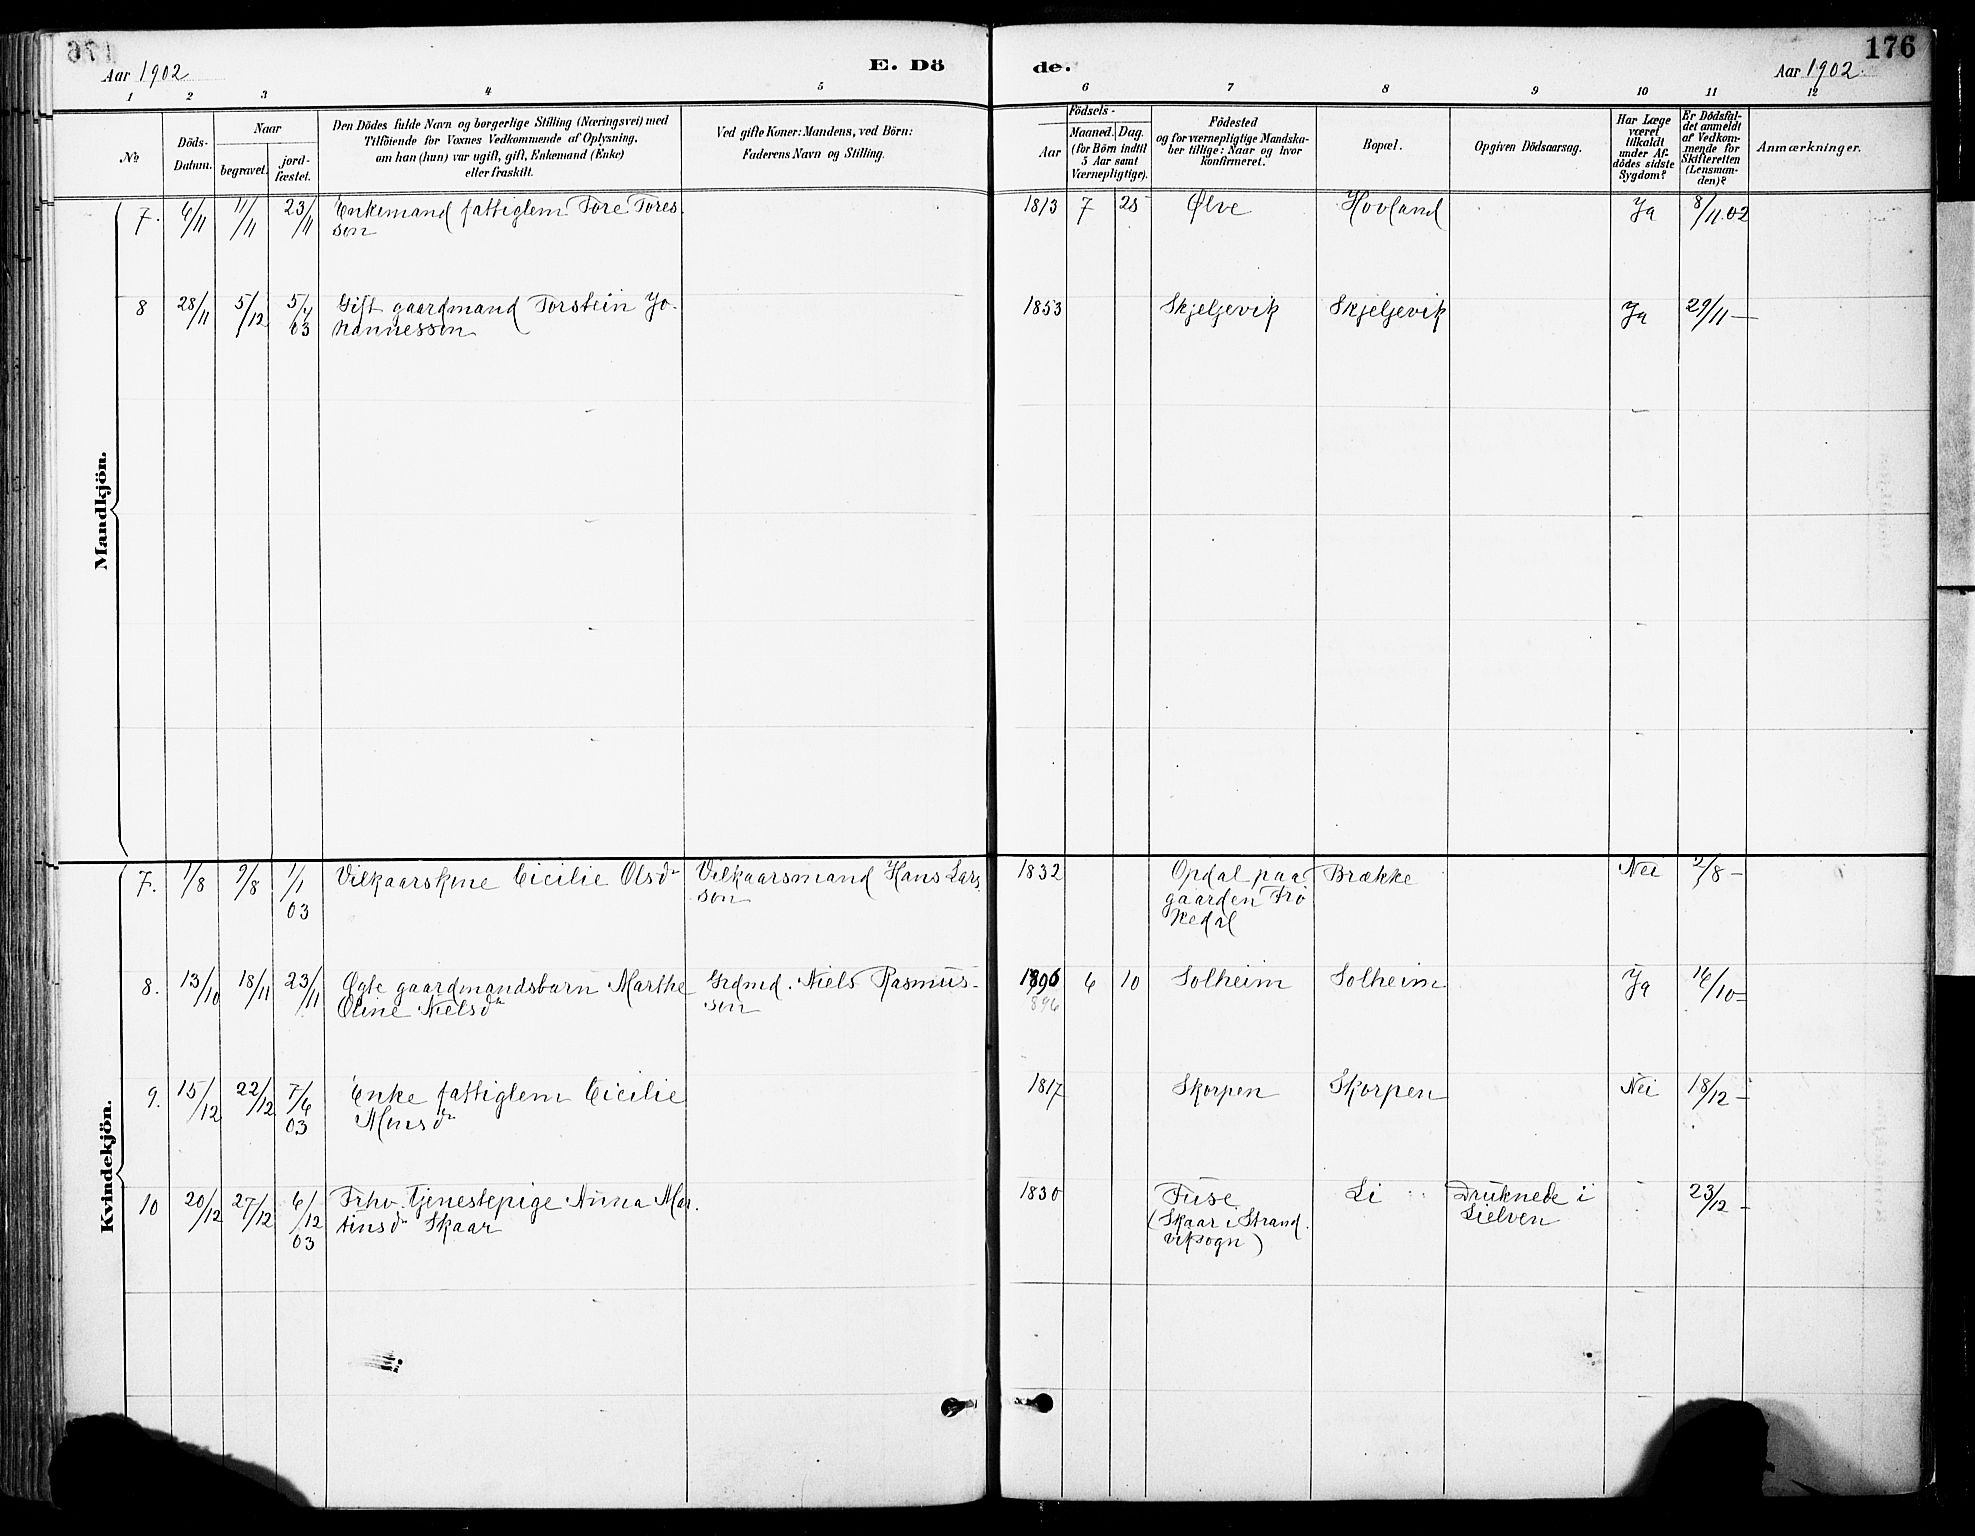 176
Aar 1902
E. Dö
de.
Aar 1902.
1 2 3 4 5 6 7 8 9 10 11 12
No
Döds-
Datum.
Naar
begravet.
jord-
fæstet.
Den Dödes fulde Navn og borgerlige Stilling (Næringsvei) med
Tilföiende for Voxnes Vedkommende af Oplysning,
om han (hun) var ugift, gift, Enkemand (Enke)
eller fraskilt.
Ved gifte Koner: Mandens, ved Börn:
Faderens Navn og Stilling.
Födsels-
Aar
Maaned.
Dag.
(for Börn indtil
5 Aar samt
Værnepligtige).
Födested
og for værnepligtige Mandska-
ber tillige: Naar og hvor
konfirmeret.
Bopæl.
Opgiven Dödsaarsag.
Har Læge
været
tilkaldt
under Af-
dödes sidste
Sygdom?
Er Dödsfal-
det anmeldt
af Vedkom-
mende for
Skifteretten
(Lensman-
den)?
Anmærkninger.
Mandkjön.
7. 6/11 11/11 23/11 Enkemand fattiglem Tore Tores-
søn
1813 7 25 Ølve Hovland Ja 8/11 02
8 28/11 5/12 5/4 03 Gift gaardmand Torstein Jo-
hannessøn
1853 Skjeljevik Skjeljevik Ja 29/11 —
Kvindekjön.
7. 1/8 9/8 1/1 03 Vilkaarskone Cicilie Olsdr
Vilkaarsmand Hans Lars-
søn
1832 Opdal paa
gaarden Frø
kedal
Brække Nei 2/8 –
8. 13/10 18/11 23/11 Ægte gaardmandsbarn Marthe
Oline Nielsdr
Grdmd. Niels Rasmus-
søn
1896
896
6 10 Solheim Solheim Ja 16/10 –
9. 15/12 22/12 7/6 03 Enke fattiglem Cicilie
Monsdr
1817 Skorpen Skorpen Nei 18/12 –
10 20/12 27/12 6/12 03 Frhv. Tjenestepige Anna Mar-
tinsdr Skaar
1830 Fuse
(Skaar i Strand-
viksogn)
Li
Druknede i
Lielven
23/12 –